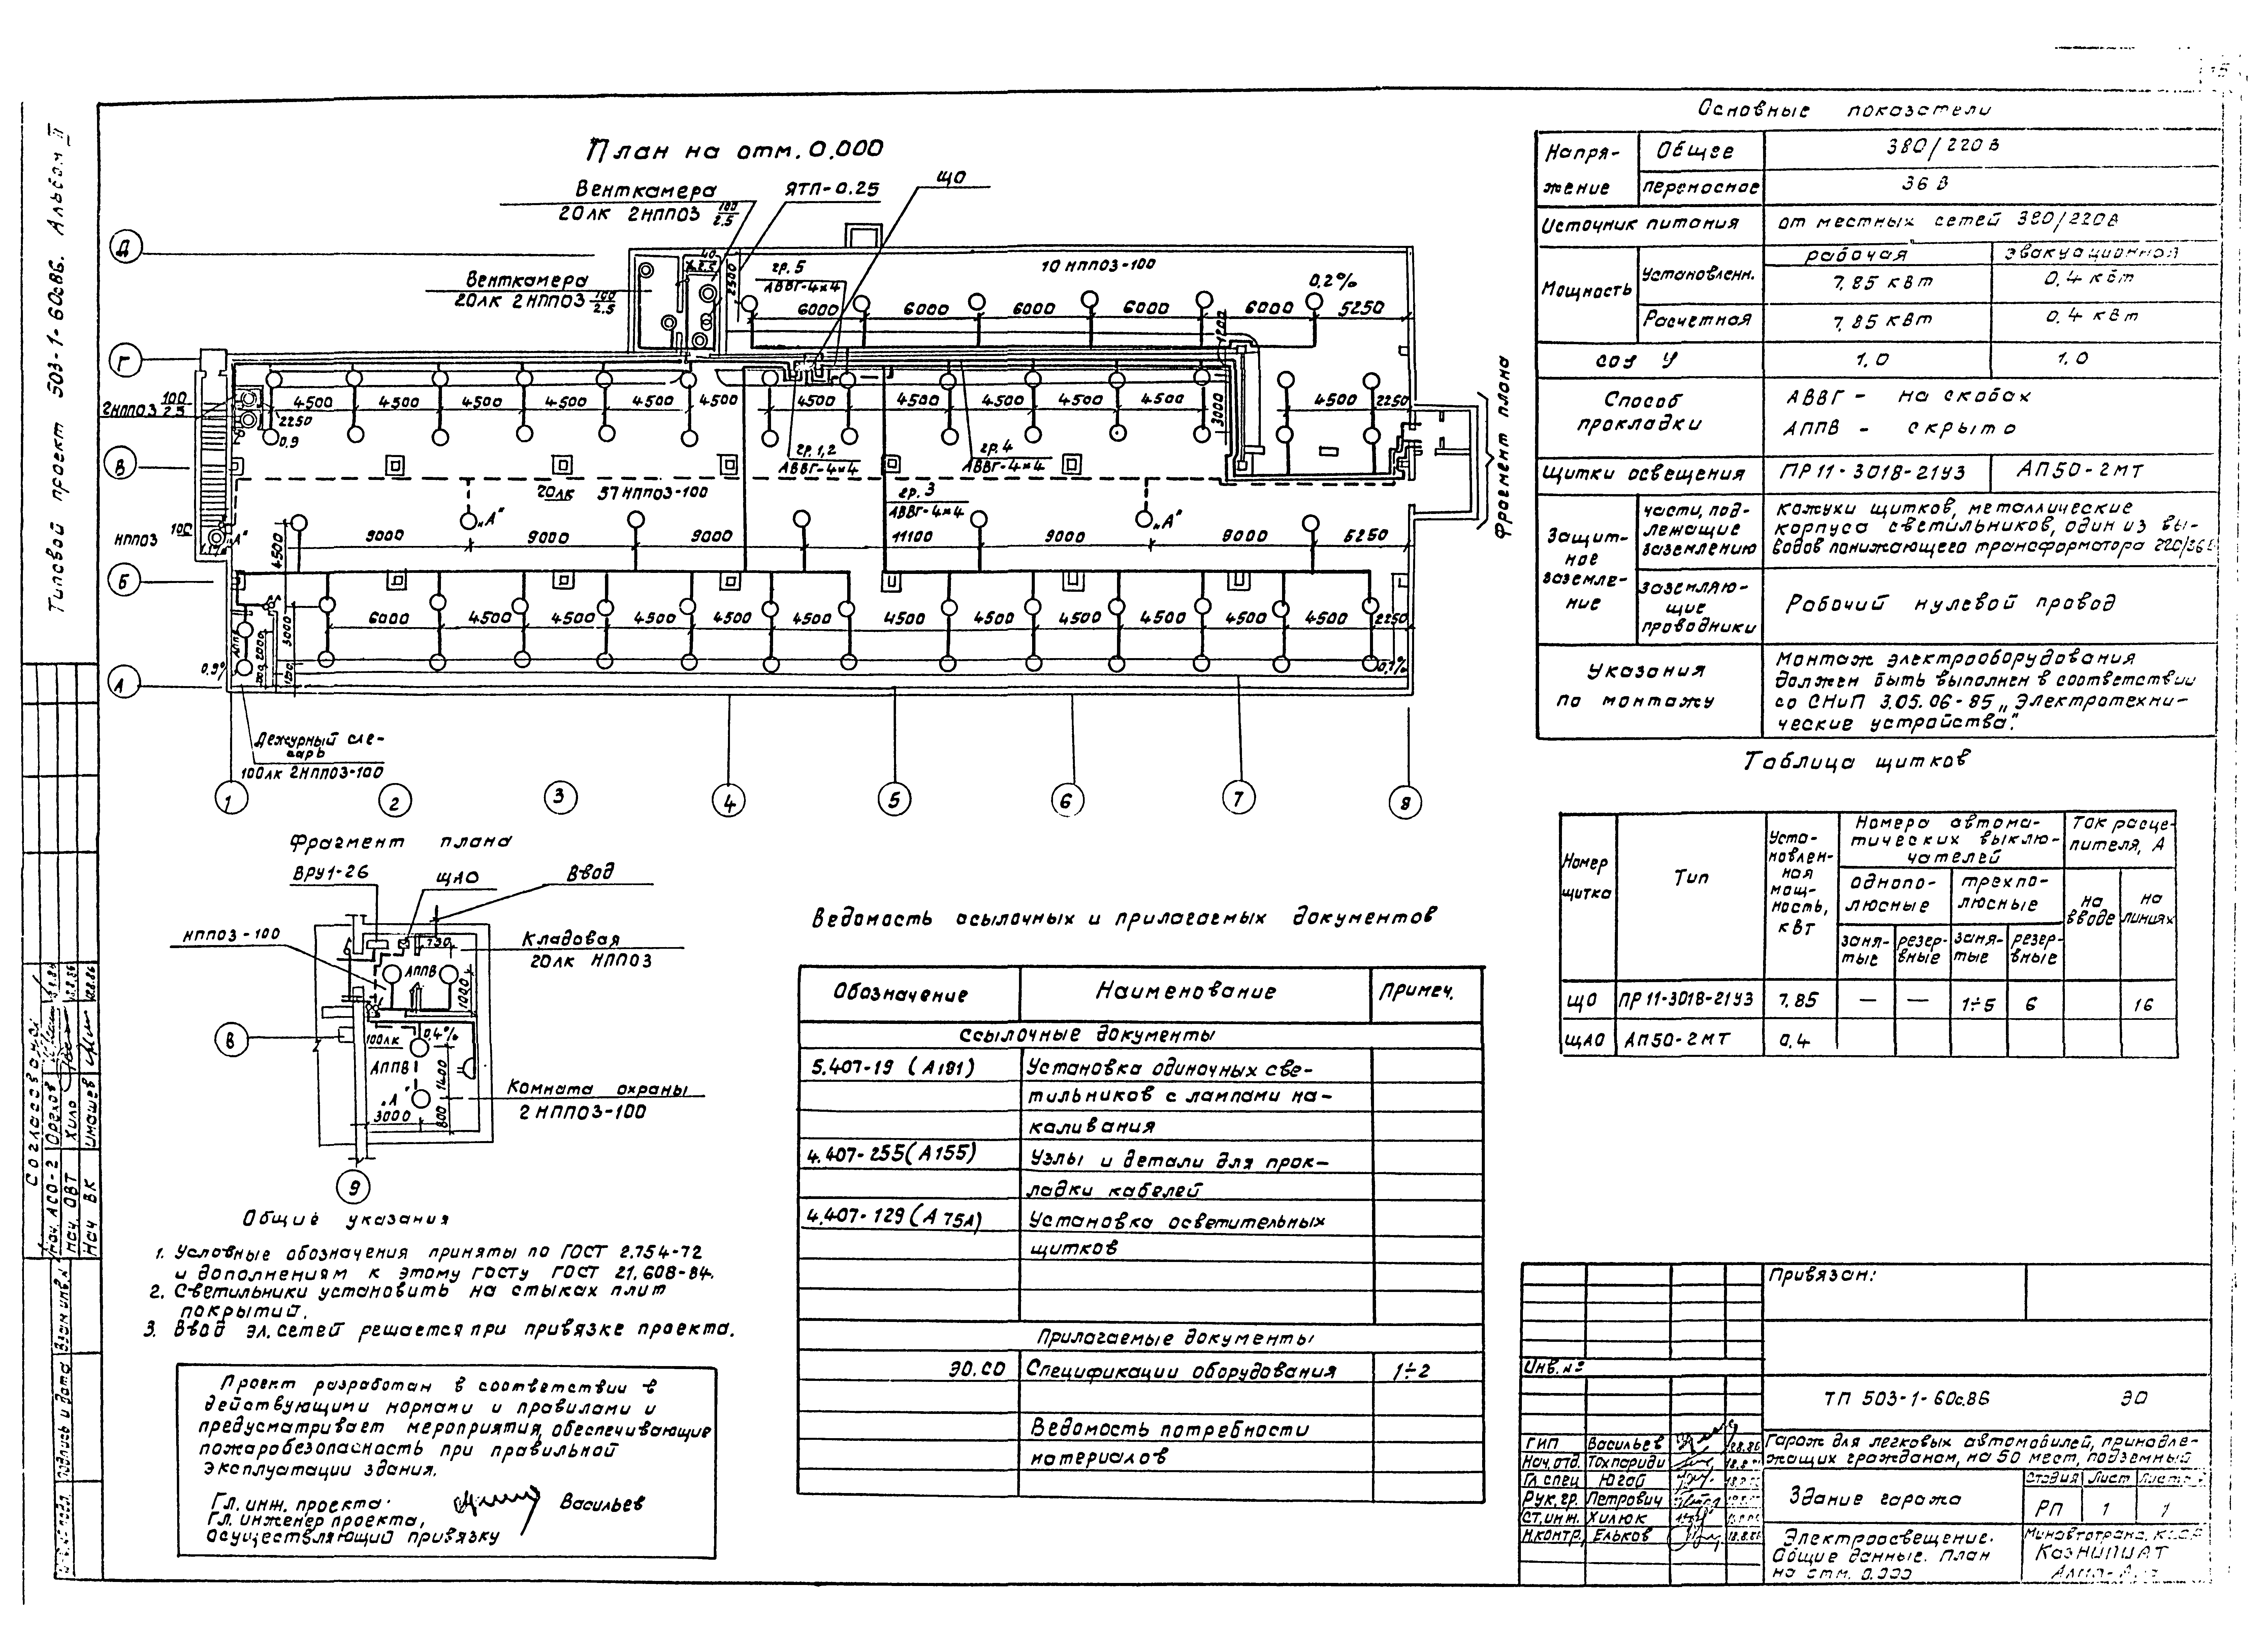 Типовой проект 503-1-60с.86. Альбом II
План на отм. 0.000
Венткамера
20лк 2НПП03 100/2.5
ЯТП-0.25
ЩО
Венткамера
20лк 2НПП03 100/2.5
40/2.5
2500
гр. 5
АВВГ-4×4
10 НПП03-100
0,2%
6000 6000 6000 6000 6000 5250
1200
Д
Г
В
Б
А
2НПП03 100/2.5
4500 4500 4500 4500 4500 4500 4500 4500 4500 4500 4500 4500 2250
2250
0,9
3000
гр. 1,2
АВВГ-4×4
гр. 4
АВВГ-4×4
20лк 57НПП03-100
гр. 3
АВВГ-4×4
НПП03 100
„А"
„А"
„А"
4500
9000 9000 9000 11100 9000 9000 5250
6000 4500 4500 4500 4500 4500 4500 4500 4500 4500 4500 2250
АППВ
2000
3000
0,9%
0,1%
Дежурный сле-
сарь
100лк 2НПП03-100
1 2 3 4 5 6 7 8
Фрагмент плана
Фрагмент плана
ВРУ1-26
ЩАО
Ввод
НПП03-100
750
Кладовая
20лк НПП03
АППВ
1000
В
100лк
0,4%
АППВ
1400
„А"
3000
800
Комната охраны
2 НПП03-100
9
Общие указания
1. Условные обозначения приняты по ГОСТ 2.754-72
и дополнениям к этому госту ГОСТ 21.608-84.
2. Светильники установить на стыках плит
покрытий.
3. Ввод эл. сетей решается при привязке проекта.
Проект разработан в соответствии в
действующими нормами и правилами и
предусматривает мероприятия, обеспечивающие
пожаробезопасность при правильной
эксплуатации здания.
Гл. инж. проекта
Васильев
Гл. инженер проекта,
осуществляющий привязку
Ведомость ссылочных и прилагаемых документов
Обозначение Наименование Примеч.
Ссылочные документы
5.407-19 (А181) Установка одиночных све-
тильников с лампами на-
каливания
4.407-255 (А155) Узлы и детали для прок-
ладки кабелей
4.407-129 (А75А) Установка осветительных
щитков
Прилагаемые документы
ЭО.СО Спецификации оборудования 1÷2
Ведомость потребности
материалов
Основные показатели
Напря-
жение
Общее 380/220В
переносное 36 В
Источник питания от местных сетей 380/220В
Мощность
рабочая эвакуационная
Установленн. 7,85 кВт 0,4 кВт
Расчетная 7,85 кВт 0,4 кВт
cos У 1,0 1,0
Способ
прокладки
АВВГ - на скобах
АППВ - скрыто
Щитки освещения ПР11-3018-21У3 АП50-2МТ
Защит-
ное
заземле-
ние
части, под-
лежащие
заземлению
Кожухи щитков, металлические
корпуса светильников, один из вы-
водов понижающего трансформатора 220/36В
заземляю-
щие
проводники
Рабочий нулевой провод
Указания
по монтажу
Монтаж электрооборудования
должен быть выполнен в соответствии
со СНиП 3.05.06-85 „Электротехни-
ческие устройства".
Таблица щитков
Номер
щитка
Тип
Уста-
новлен-
ная
мощ-
ность,
кВт
Номера автома-
тических выклю-
чателей
Ток расце-
пителя, А
однопо-
люсные
трехпо-
люсные
на
вводе
на
линиях
заня-
тые
резер-
вные
заня-
тые
резер-
вные
ЩО ПР11-3018-21У3 7,85 — — 1÷5 6 16
ЩАО АП50-2МТ 0,4
Привязан:
Инв. №
ТП 503-1-60с.86 ЭО
Гараж для легковых автомобилей, принадле-
жащих гражданам, на 50 мест, подземный
ГИП Васильев
Нач. отд. Тохпариди
Гл. спец Югай
Рук. гр. Петрович
Ст. инж. Хилюк
Н. контр. Ельков
Здание гаража
Стадия Лист Листов
РП 1 1
Электроосвещение.
Общие данные. План
на отм. 0.000
Минавтотранс КССР
КазНИПИАТ
Алма-Ата
Согласовано
Нач. АСО-2 Орехов
Нач. ОВТ Хило
Нач ВК Имашев
Взам инв. №
Подпись и дата